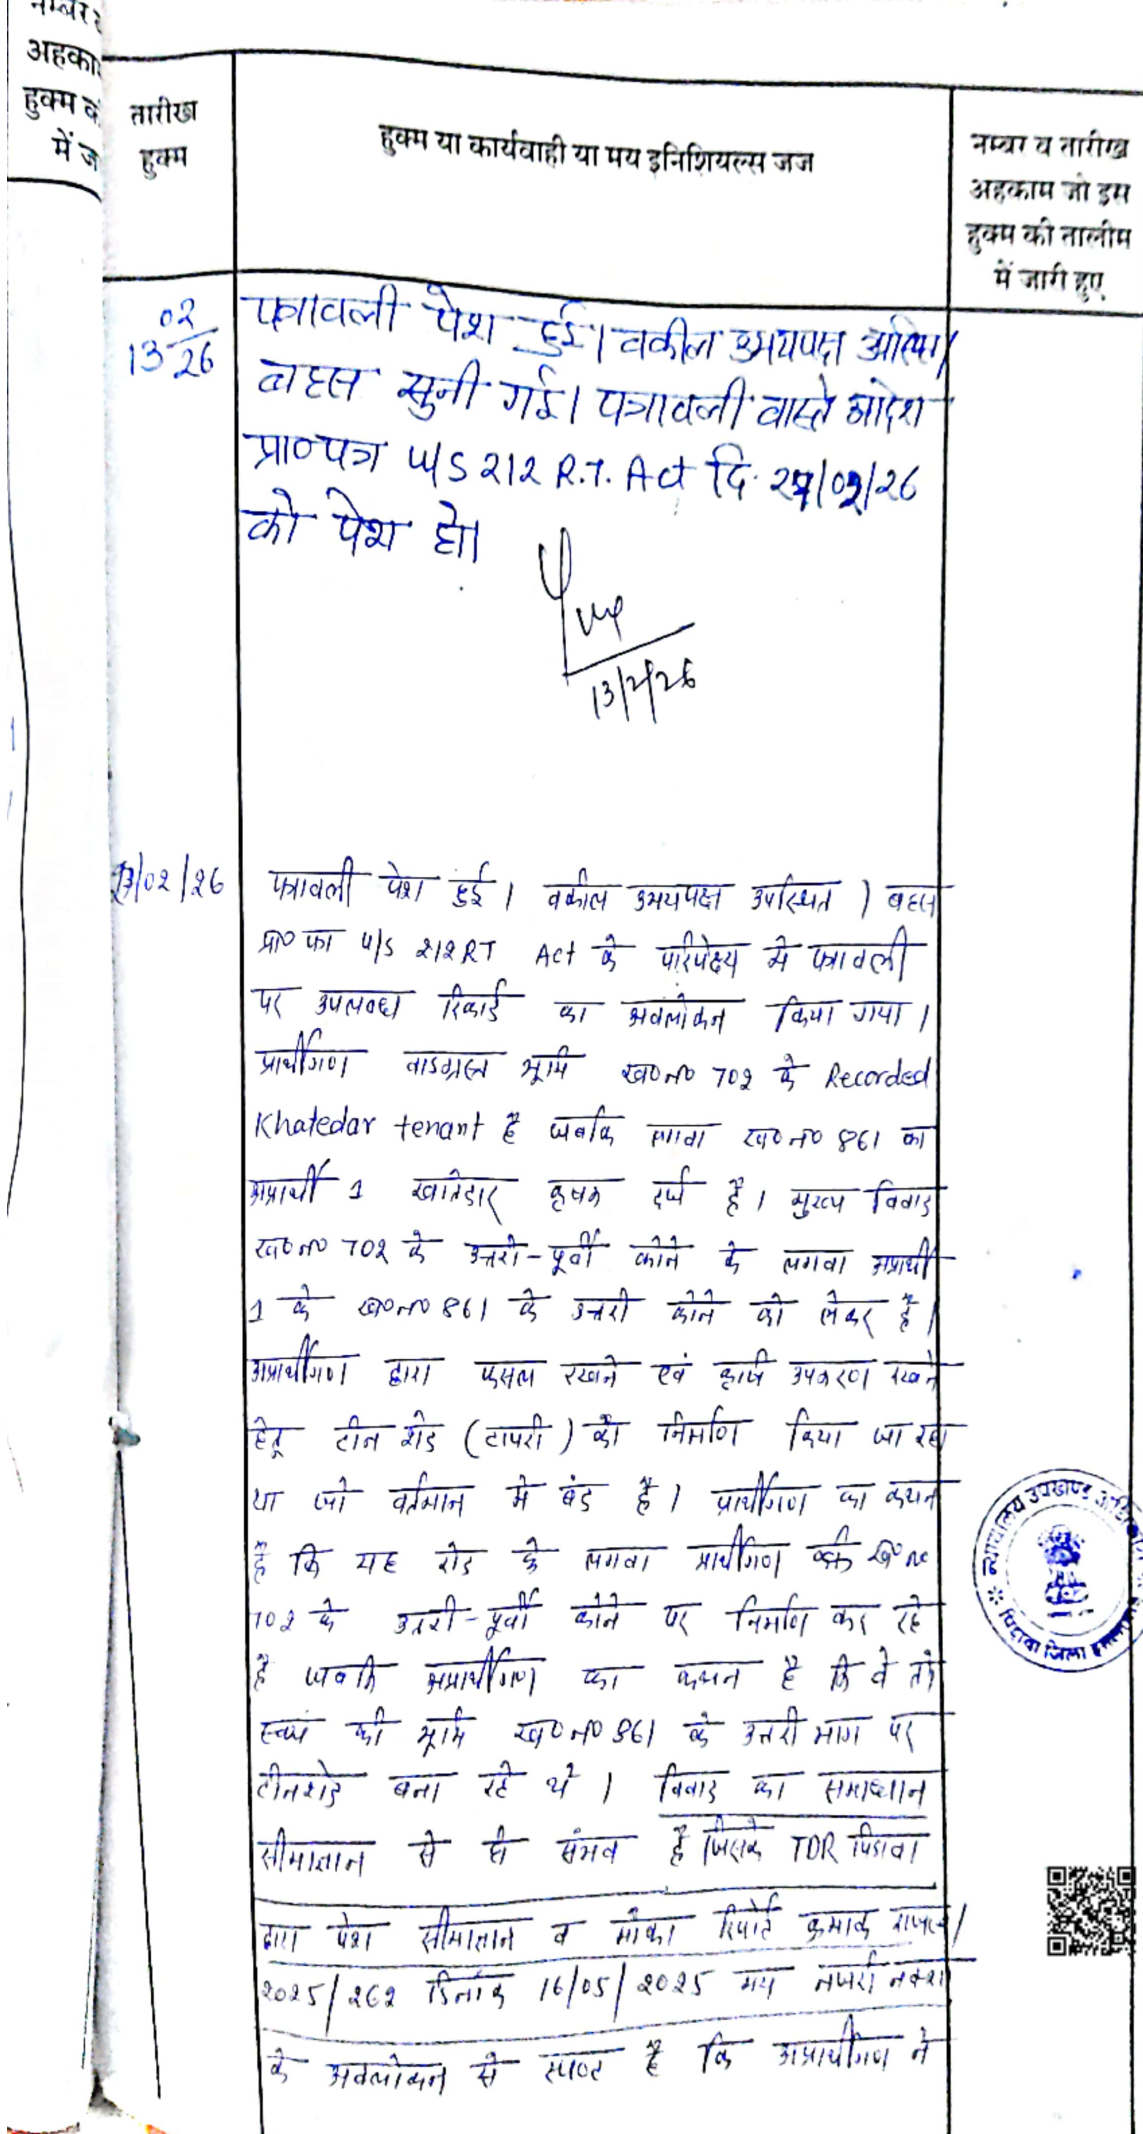 अहका
हुक्म व
में ज
तारीख
हुक्म
हुक्म या कार्यवाही या मय इनिशियल्स जज
नम्बर व तारीख
अहकाम जो इस
हुक्म की तालीम
में जारी हुए
13 02/26
पत्रावली पेश हुई। वकील उभयपक्ष
बहस सुनी गई। पत्रावली वास्ते आदेश
प्रा०पत्र U/S 212 R.T. Act दि. /02/26
को पेश हो।
13/2/26
/02/26
पत्रावली पेश हुई। वकील उभयपक्ष उपस्थित। बहस
प्रा० पत्र U/S 212 RT Act के परिपेक्ष्य मे पत्रावली
पर उपलब्ध रिकार्ड का अवलोकन किया गया।
प्रार्थीगण वादग्रस्त भूमि ख०न० 702 के Recorded
Khatedar tenant है जबकि लगवा ख०न० 861 का
अप्रार्थी 1 खातेदार कृषक दर्ज है। मुख्य विवाद
ख०न० 702 के उत्तरी-पूर्वी कोने के लगवा अप्रार्थी
1 के ख०न० 861 के उत्तरी कोने को लेकर है।
अप्रार्थीगण द्वारा फसल रखने एवं कृषि उपकरण रखने
हेतू टीन शेड (टापरी) का निर्माण किया जा रहा
था जो वर्तमान मे बंद है। प्रार्थीगण का कथन
है कि यह शेड के लगवा प्रार्थीगण ख० न०
702 के उतरी-पूर्वी कोने पर निर्माण कर रहे
है जबकि अप्रार्थीगण का कथन है कि वे तो
स्वयं की भूमि ख०न० 861 के उत्तरी भाग पर
टीनशेड बना रहे थे। विवाद का समाधान
सीमाज्ञान से ही संभव है जिसके TDR पिडावा
द्वारा पेश सीमाज्ञान व मौका रिपोर्ट क्रमांक राजस्व/
2025/262 दिनांक 16/05/2025 मय नजरी नक्शा
के अवलोकन से स्पष्ट है कि अप्रार्थीगण ने
न्यायालय उपखण्ड
पिडावा जिला